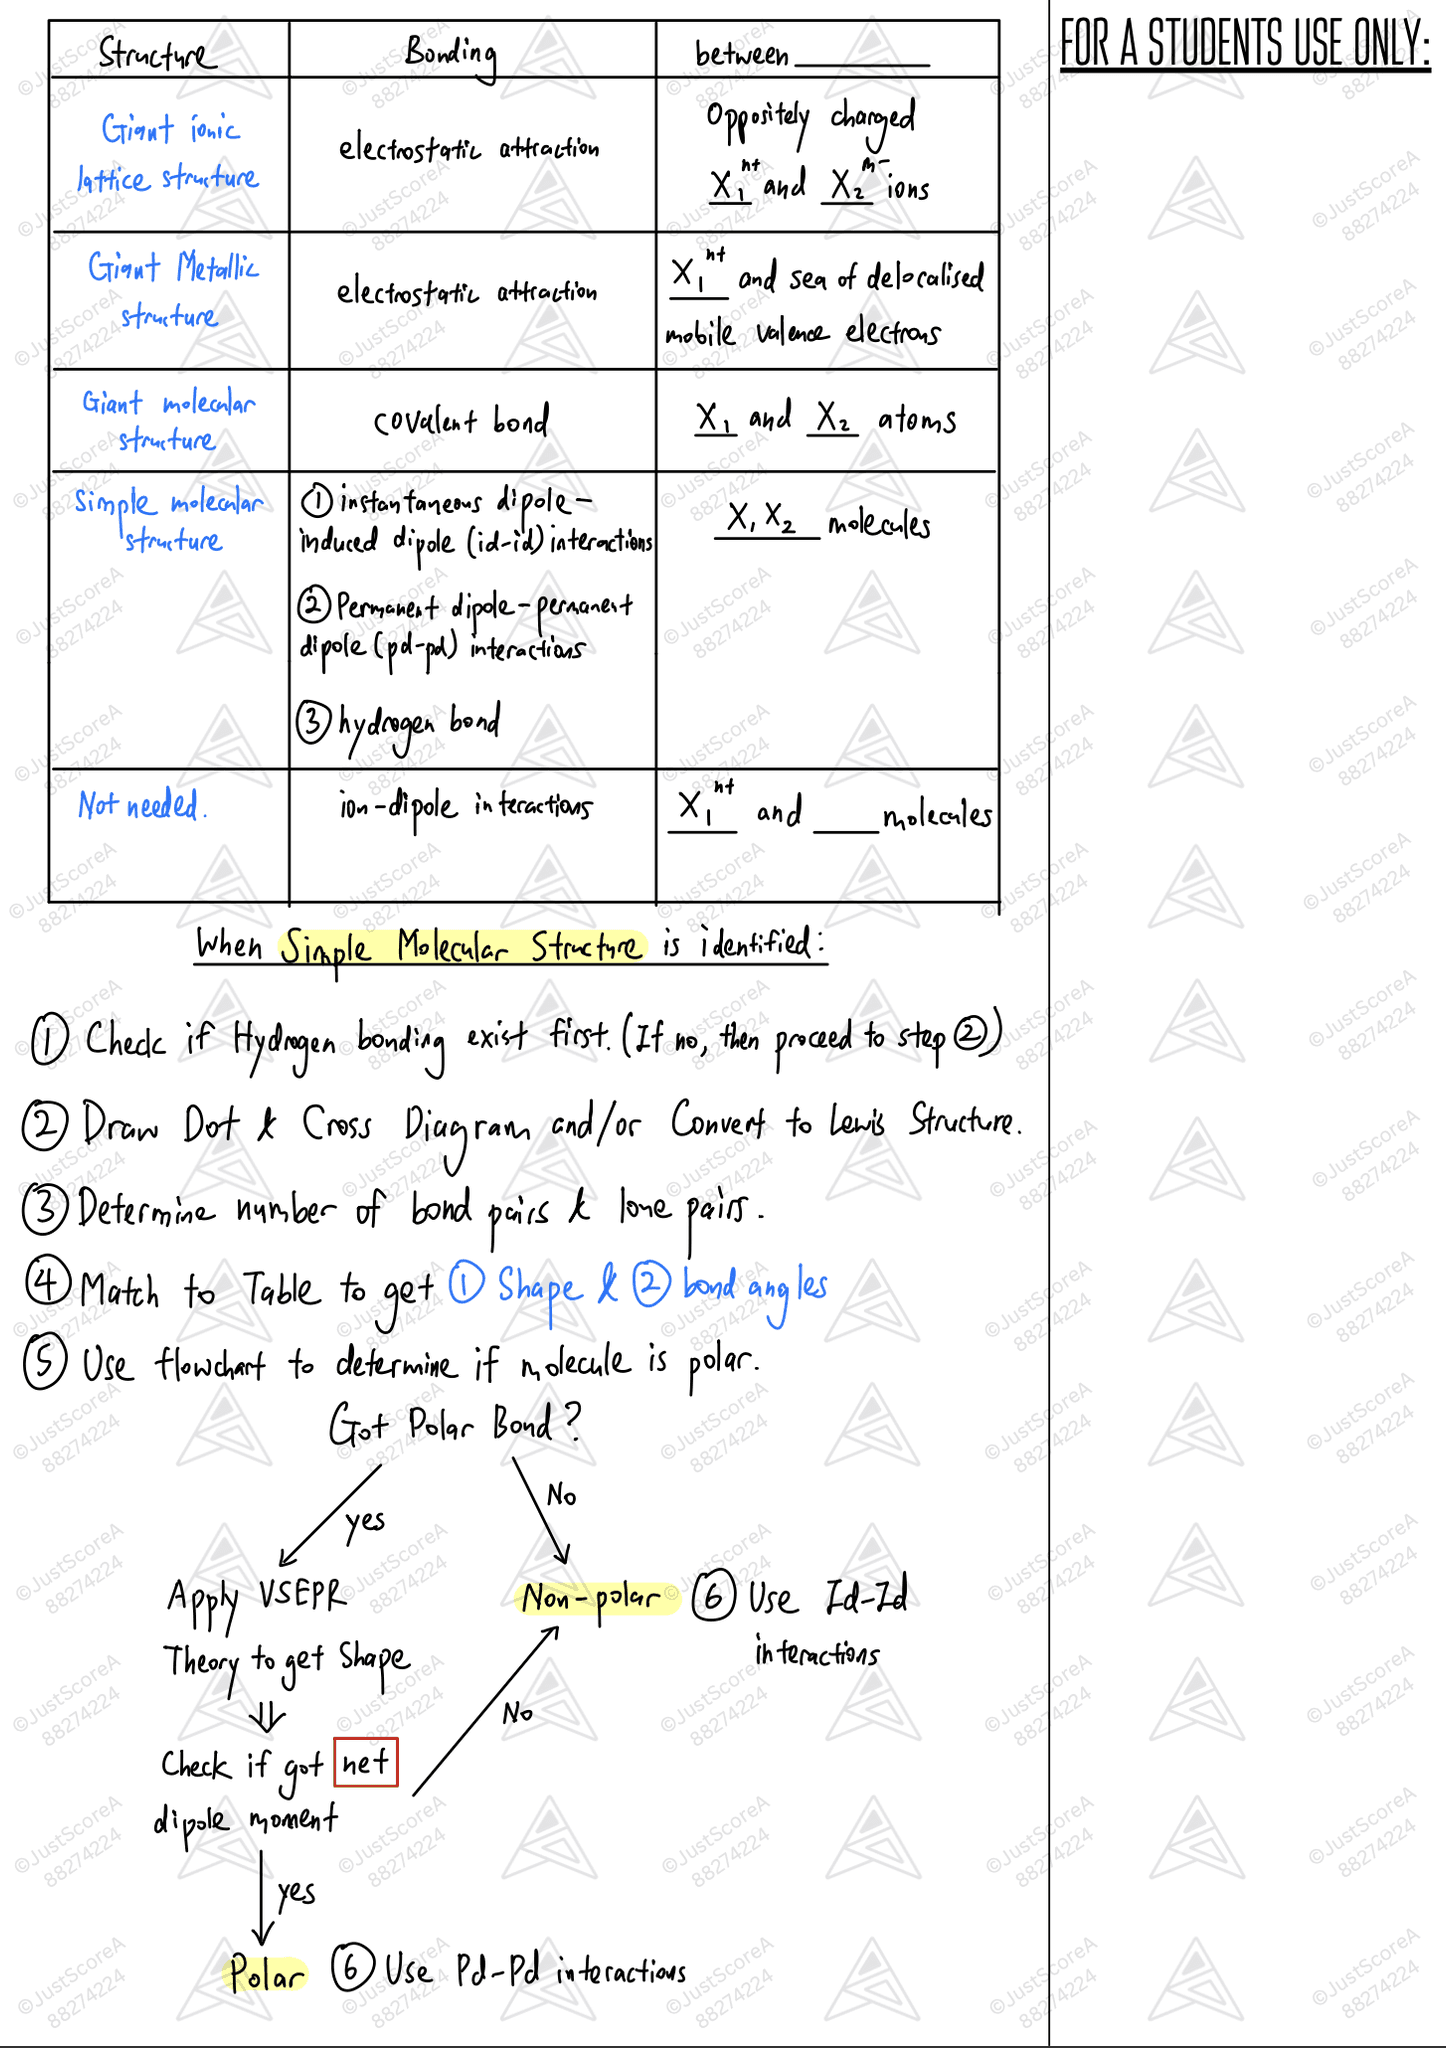 FOR A STUDENTS USE ONLY:
Structure
Bonding
between ________
Giant ionic
lattice structure
electrostatic attraction
Oppositely charged
X₁ⁿ⁺ and X₂ᵐ⁻ ions
Giant Metallic
structure
electrostatic attraction
X₁ⁿ⁺ and sea of delocalised
mobile valence electrons
Giant molecular
structure
covalent bond
X₁ and X₂ atoms
Simple molecular
structure
① instantaneous dipole–
induced dipole (id-id) interactions
② Permanent dipole – permanent
dipole (pd-pd) interactions
③ hydrogen bond
X₁X₂ molecules
Not needed.
ion-dipole interactions
X₁ⁿ⁺ and ____ molecules
When Simple Molecular Structure is identified:
① Check if Hydrogen bonding exist first. (If no, then proceed to step ②)
② Draw Dot & Cross Diagram and/or Convert to Lewis Structure.
③ Determine number of bond pairs & lone pairs.
④ Match to Table to get ① Shape & ② bond angles
⑤ Use flowchart to determine if molecule is polar.
Got Polar Bond?
yes
No
Apply VSEPR
Theory to get Shape
Non-polar
⑥ Use Id-Id
interactions
No
Check if got net
dipole moment
yes
Polar
⑥ Use Pd-Pd interactions
©JustScoreA
88274224